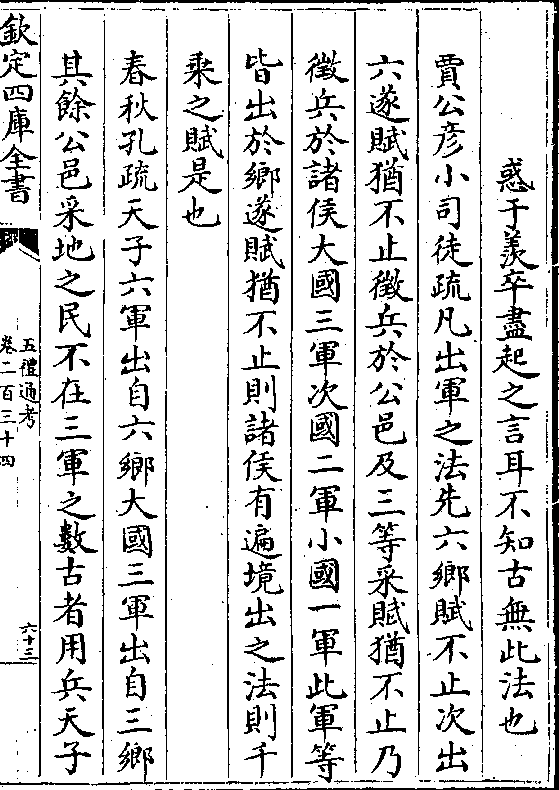 惑于羨卒盡起之言耳不知古無此法也
賈公彦小司徒疏凡出軍之法先六鄉賦不止次出
六遂賦猶不止徵兵於公邑及三等采賦猶不止乃
徵兵於諸侯大國三軍次國二軍小國一軍此軍等
皆出於鄉遂賦猶不止則諸侯有遍境出之法則千
乘之賦是也
春秋孔疏天子六軍出自六鄉大國三軍出自三鄉
其餘公邑采地之民不在三軍之數古者用兵天子
欽定四庫全書
五禮通考
卷二百三十四
六十三